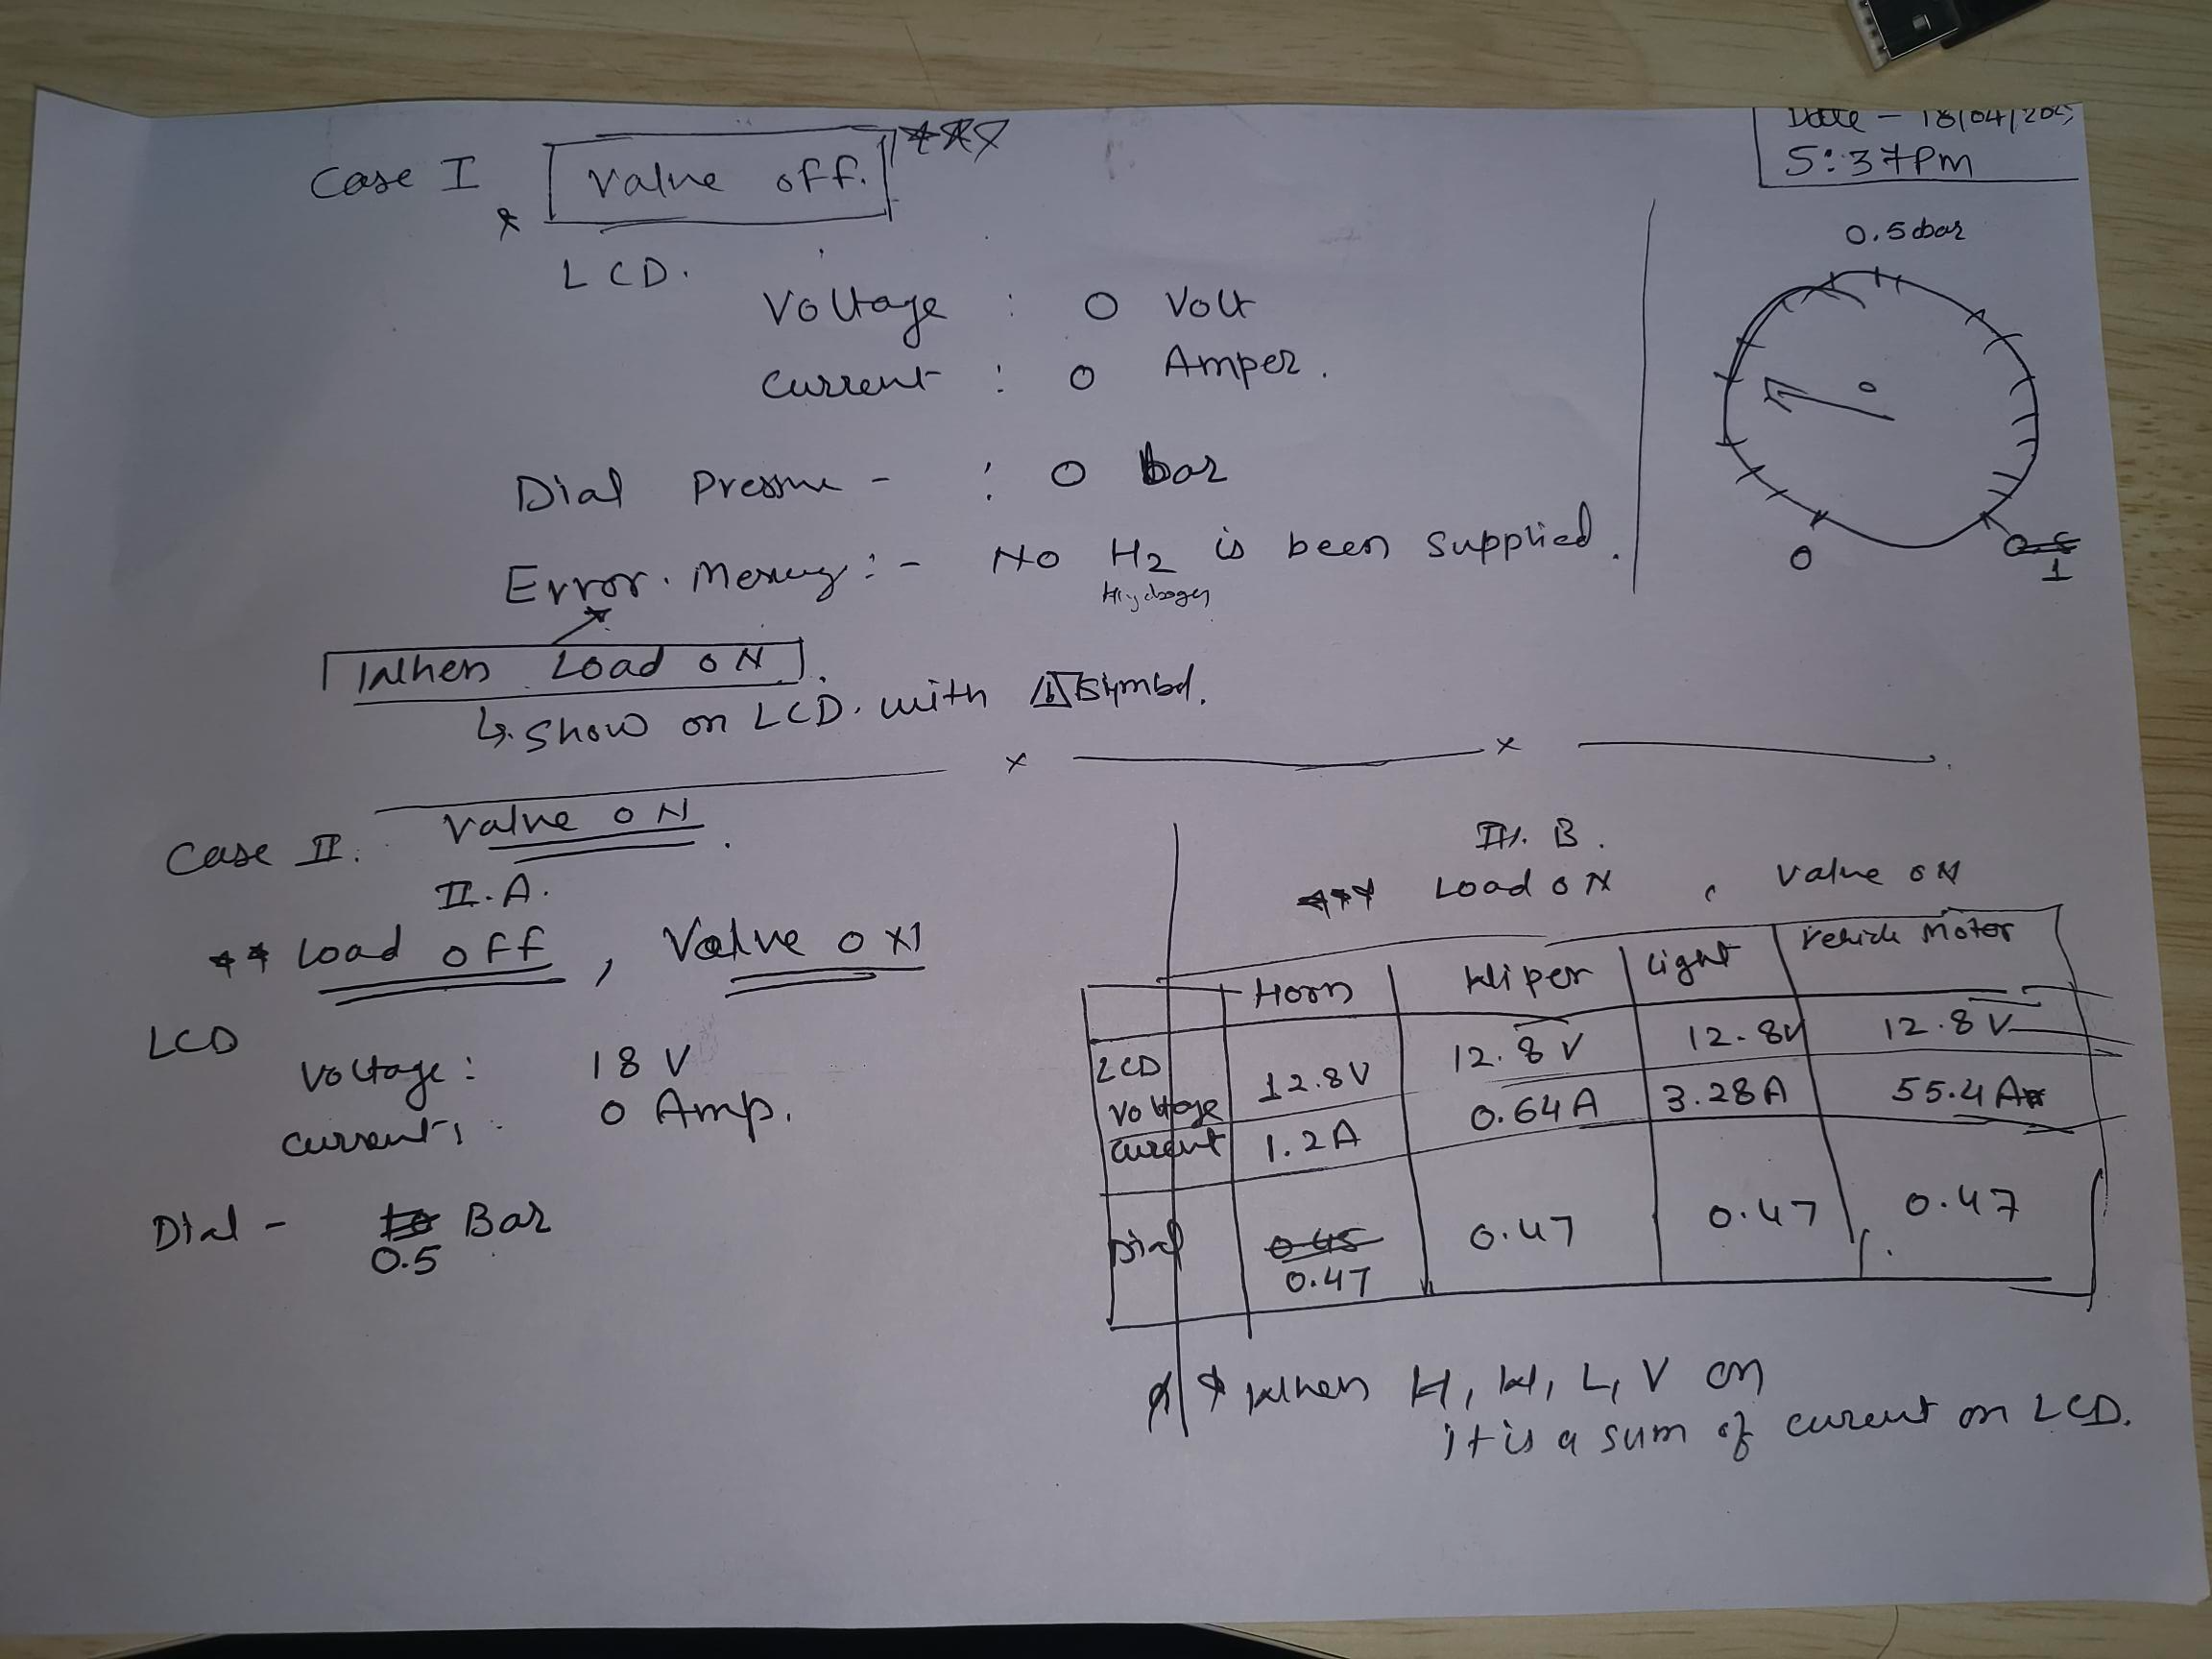 Date - 18/04/20
5:37Pm
Case I Valve off.
LCD.
Voltage : 0 Volt
Current : 0 Amper.
Dial Pressure - : 0 bar
Error. Messag : - No H2 is been supplied.
Hydrogen
When Load ON.
Show on LCD. with symbol.
0.5 bar
0
0
1
Case II. Valve ON.
II.A.
** Load off, Valve ON
LCD
Voltage : 18 V
Current : 0 Amp.
Dial - Bar
0.5
II. B.
*** Load ON, Valve ON
Horn Wiper Light Vehicle Motor
LCD
Voltage 12.8V 12.8 V 12.8V 12.8 V
Current 1.2A 0.64A 3.28A 55.4 A
Dial 0.45 0.47 0.47 0.47
0.47
* * When H, W, L, V on
it is a sum of curent on LCD.